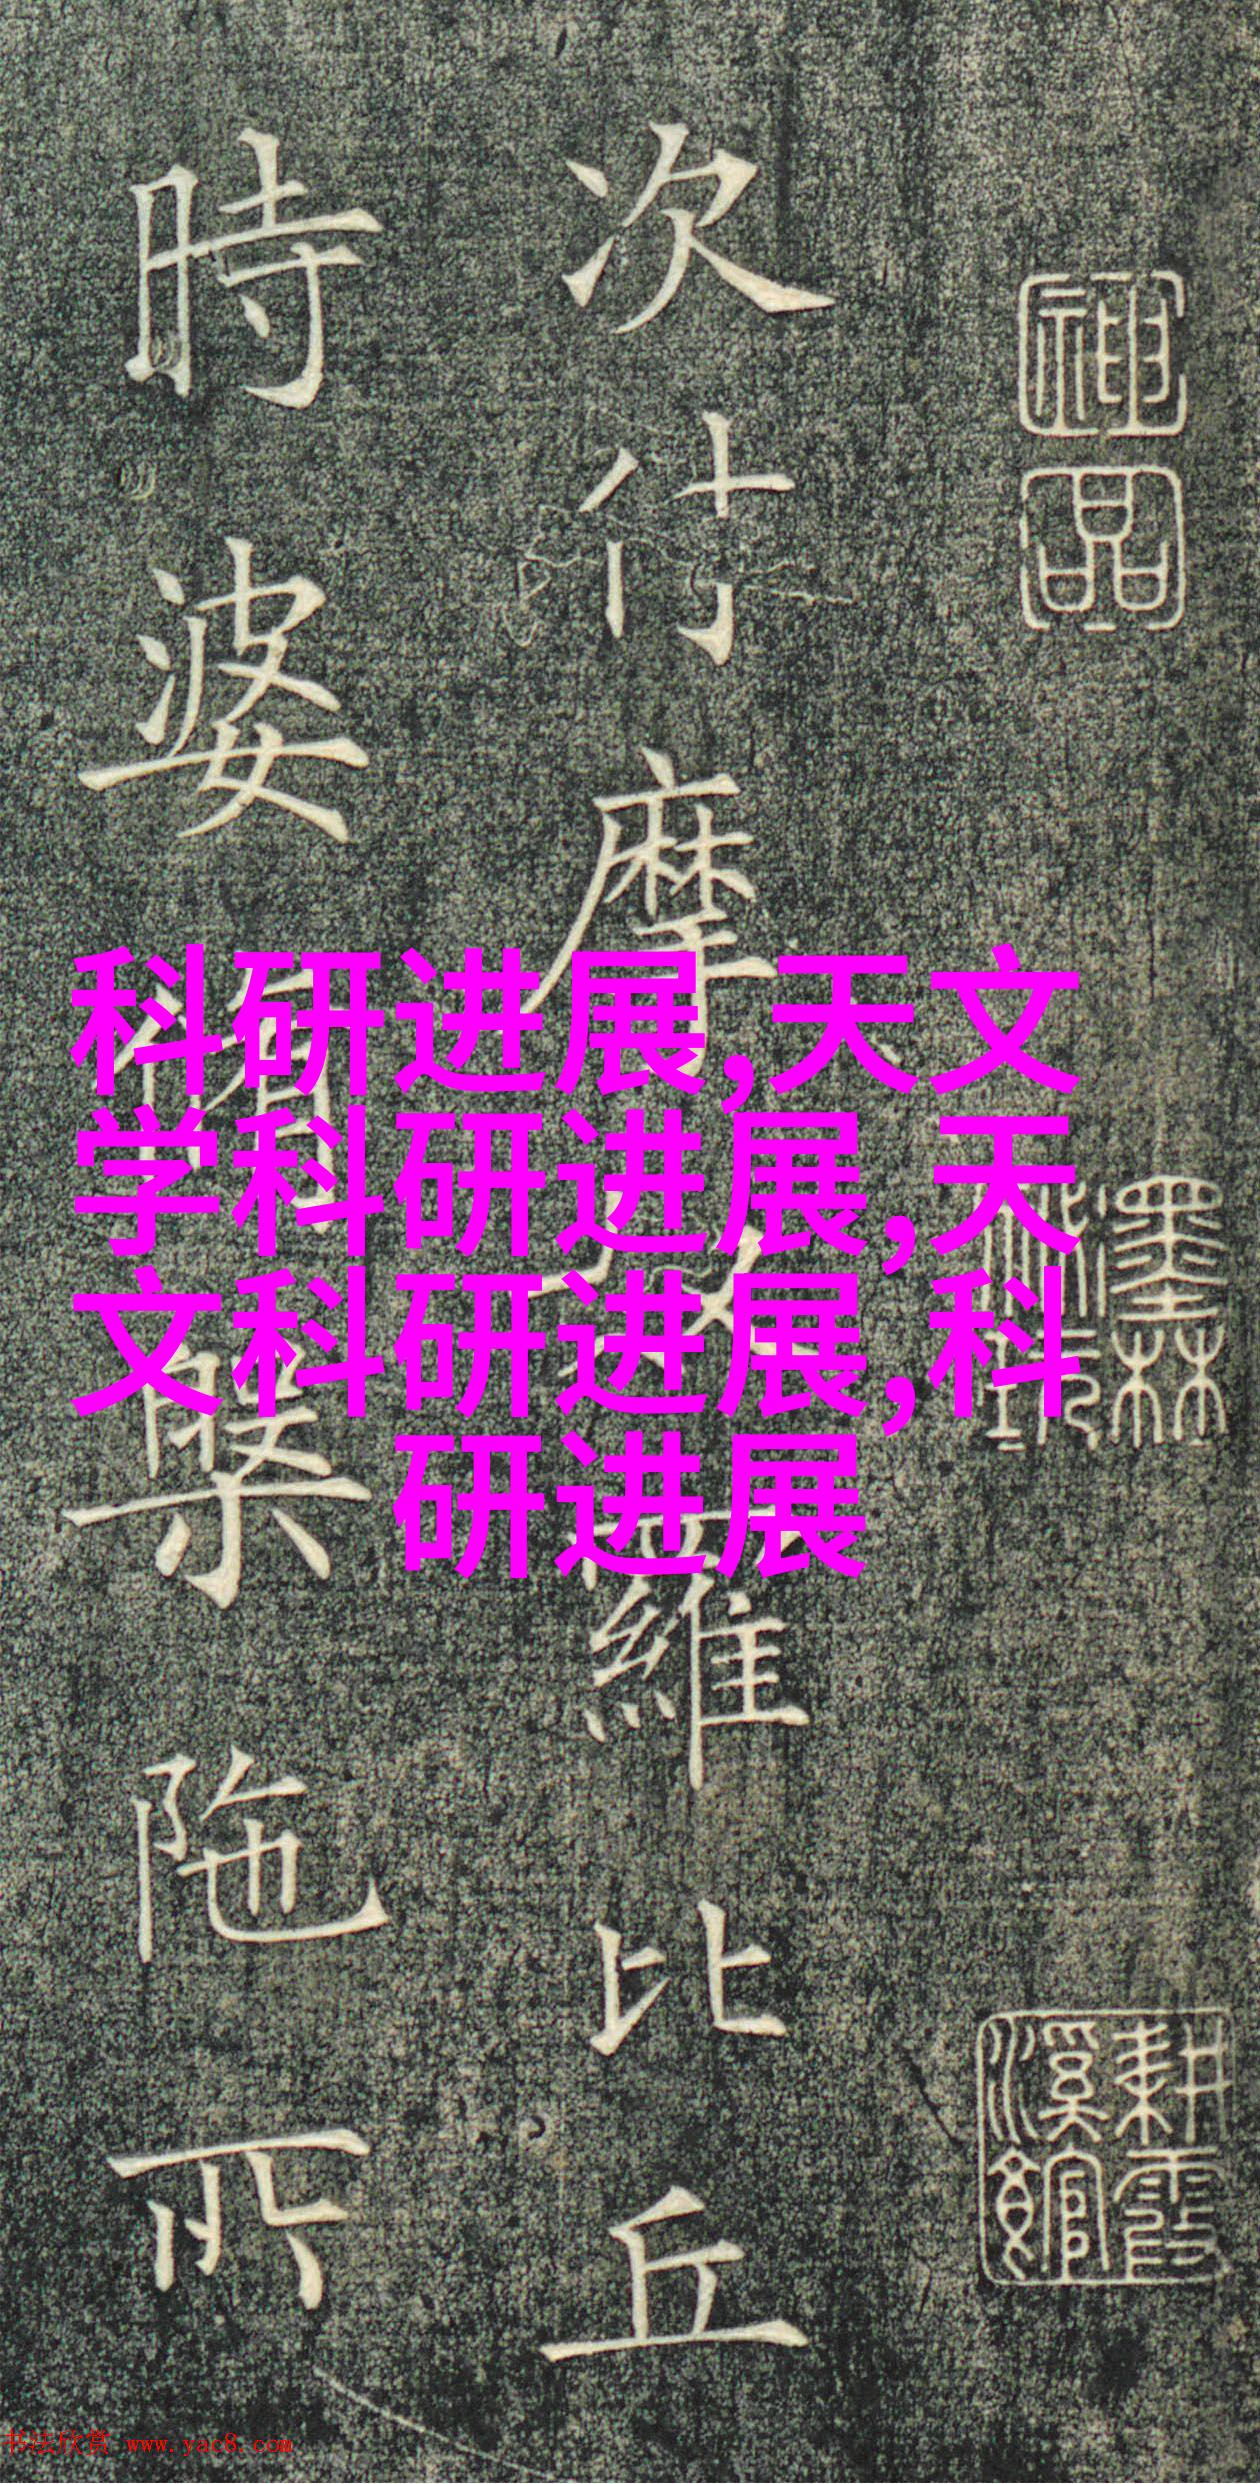 次付摩
羅比丘
時婆
槃陁所
神品
墨林
耕霞
溪館
科研进展,天文
学科研进展,天
文科研进展,科
研进展
书法欣赏 www.yac8.com